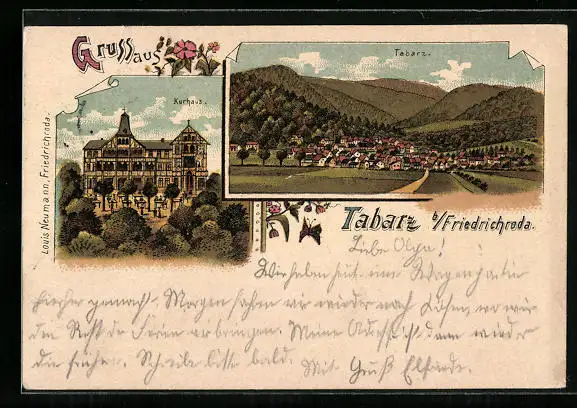 Gruss aus
Tabarz.
Kurhaus.
Louis Neumann, Friedrichroda.
Tabarz b/Friedrichroda.
Liebe Olga!
Wir haben heut eine Wagenpartie
hierher gemacht. Morgen fahren wir wieder nach
den Rest der Ferien verbringen. Meine Adresse ist dann wieder
die frühere. Schreibe bitte bald. Mit Gruß